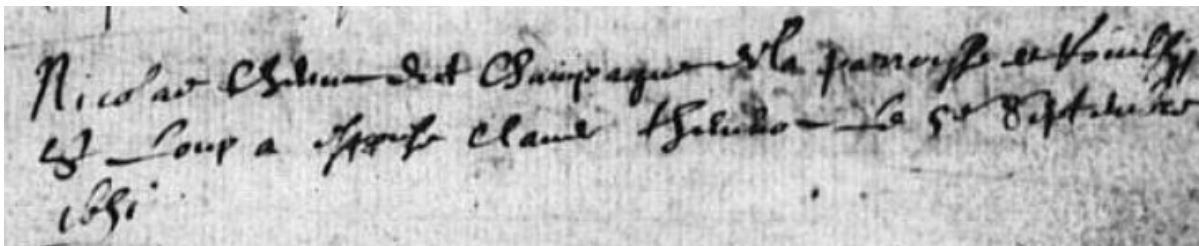 Nicolas dit Champagne de la parroisse de Rouilly
St Loup a espouse Claude le 5e Septembre
1651